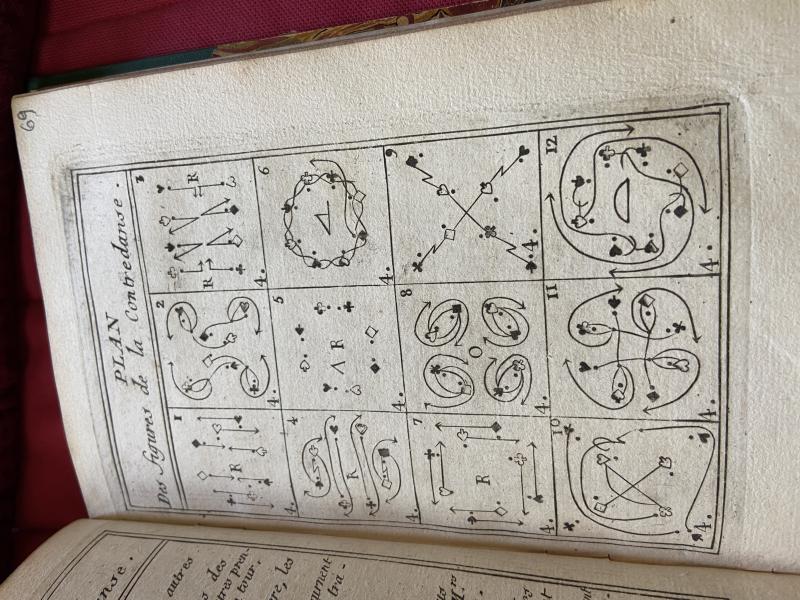 69
PLAN
Des figures de la Contredanse.
1
2
3
R
R
R
4.
4.
4.
4
5
6
R
R
4.
4.
4.
7
8
9
R
4.
4.
4.
10
11
12
4.
4.
4.
anse.
autres
s des
tour.
les
tra-